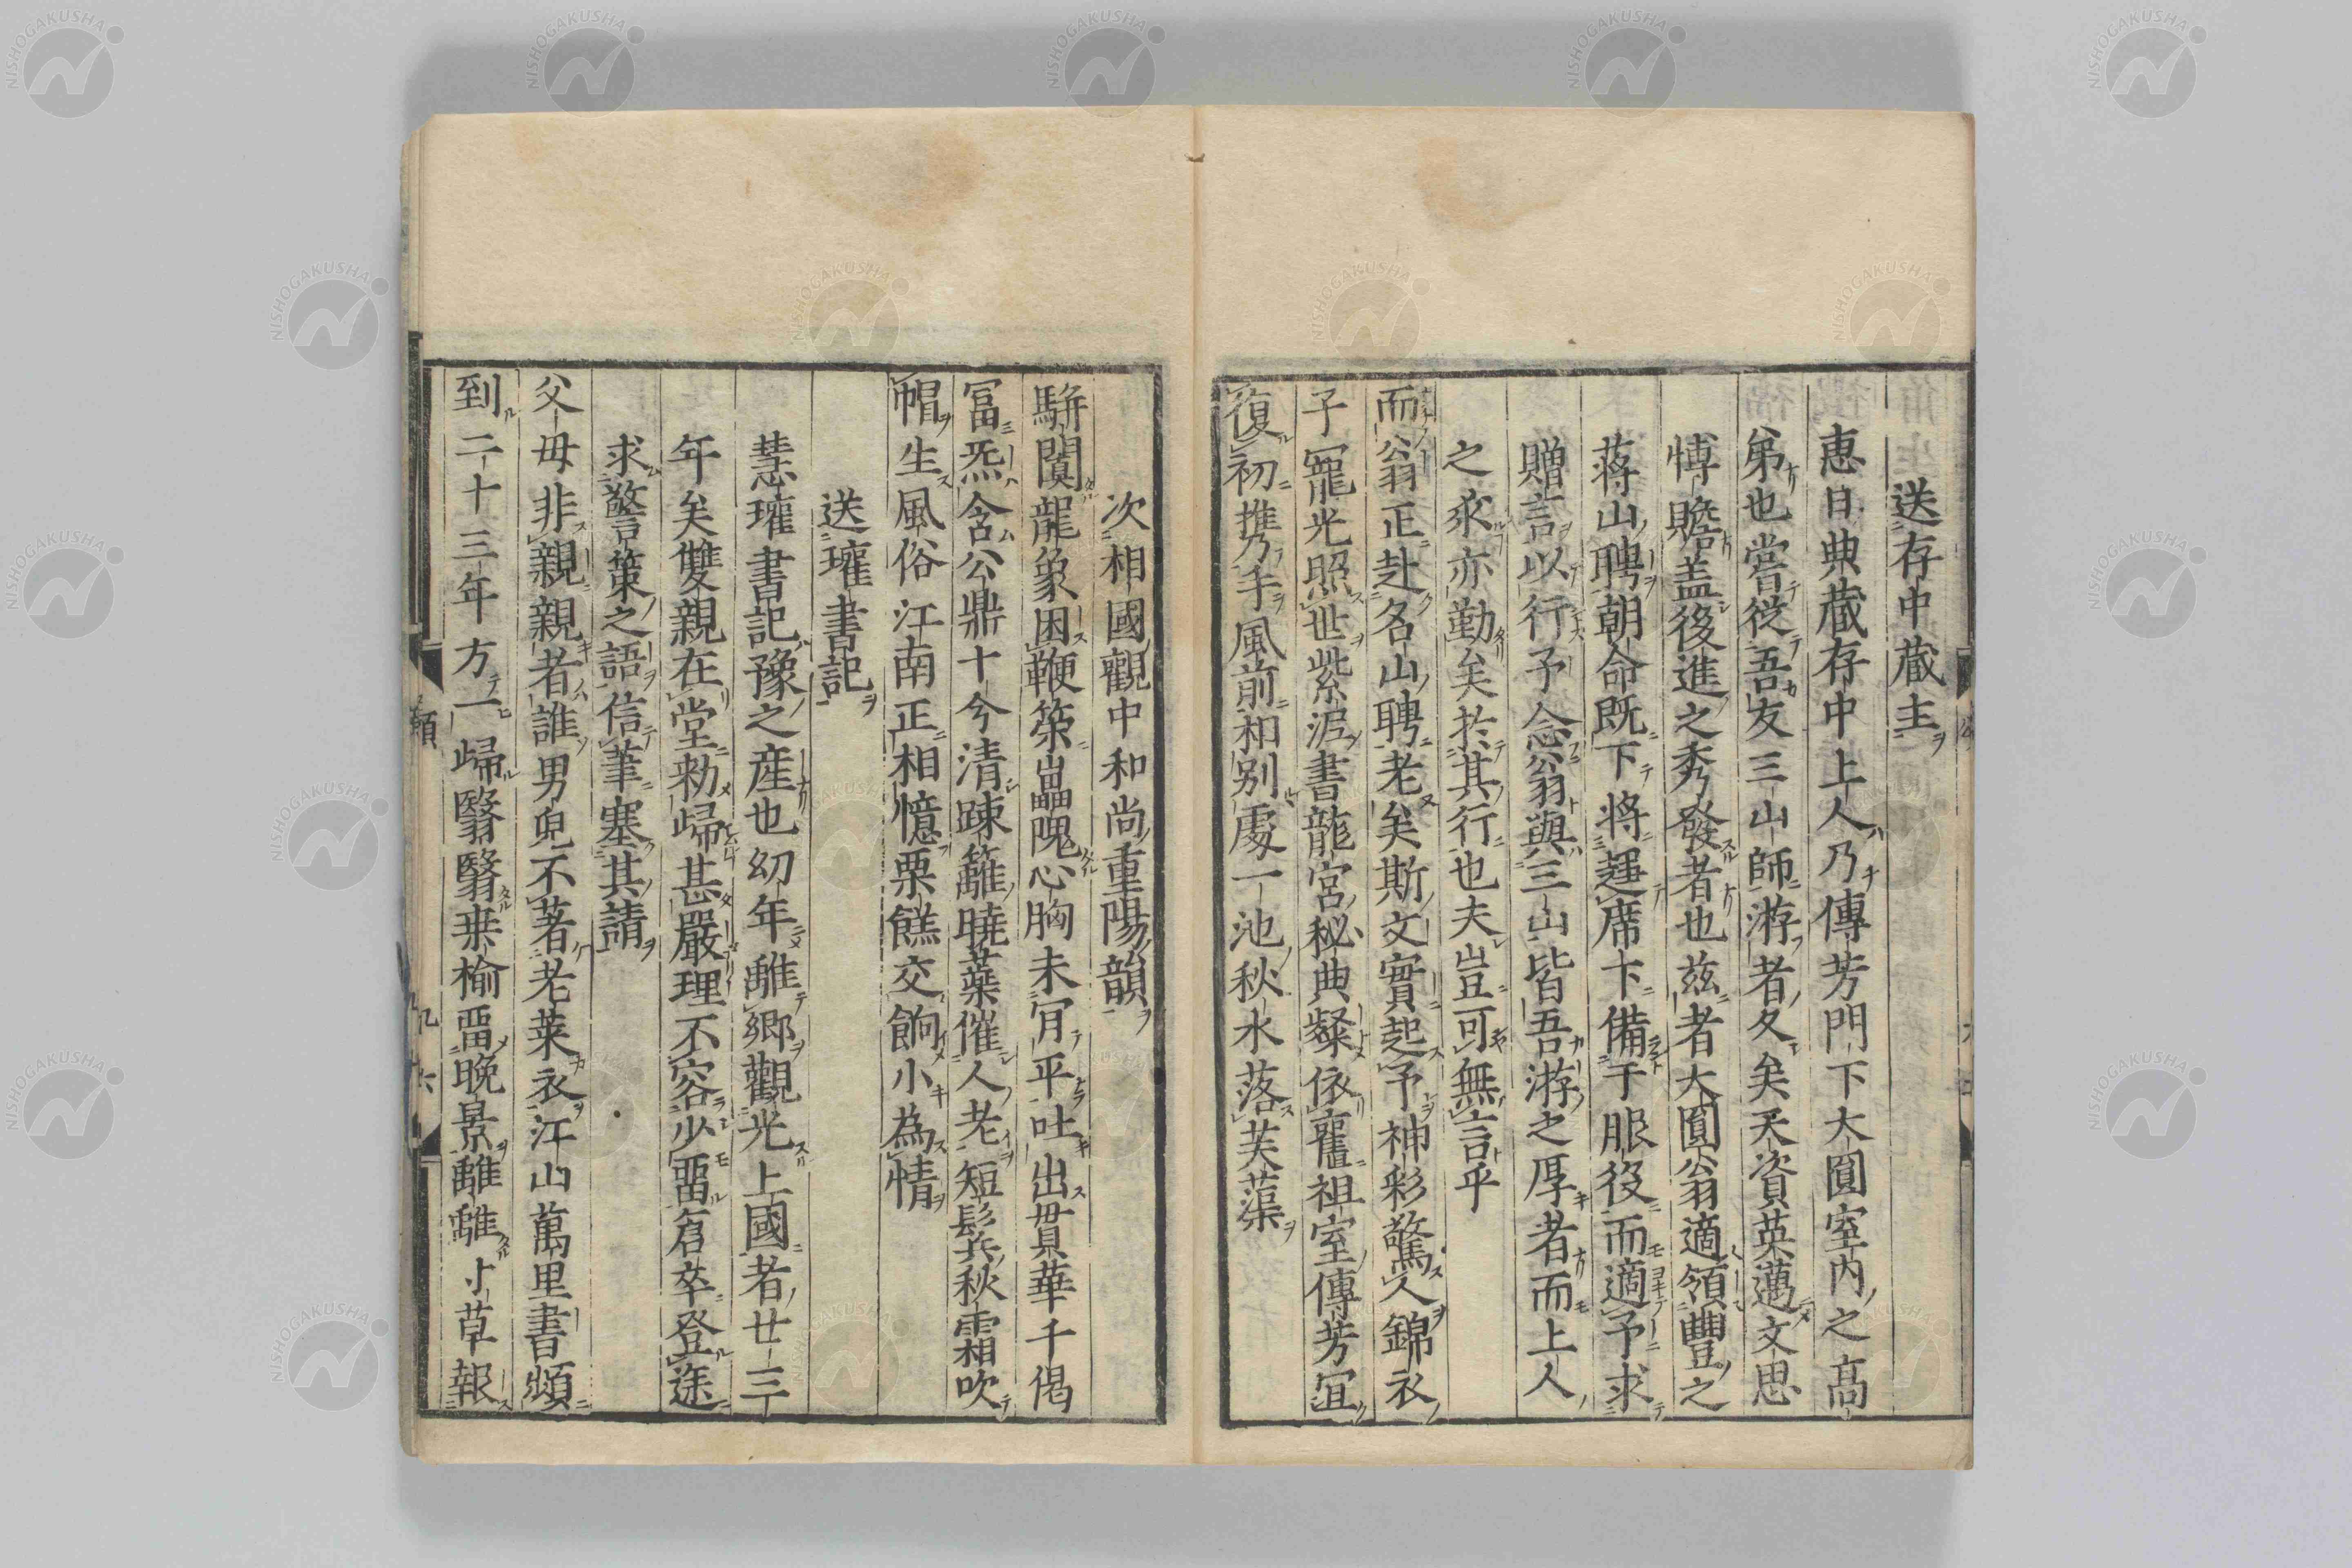 送存中蔵主
惠日典蔵存中上人乃傳芳門下大圓室内之高
弟也嘗從吾友三山師游者久矣天資英邁文思
愽贍盖後進之秀發者也茲者大圓翁適領豐之
蒋山聘朝命既下将趨席卞備于服役而適予求
贈言以行予念翁與三山皆吾游之厚者而上人
之求亦勤矣於其行也夫豈可無言乎
而翁正赴名山聘老矣斯文實起予神彩驚人錦衣
子寵光照世紫泥書龍宮秘典粲依舊祖室傳芳冝
復初携手風前相别處一池秋水落芙蕖
次相國觀中和尚重陽韻
駢闐龍象困鞭箠磊隗心胸未肎平吐出貫華千偈
冨炁含公鼎十分清疎籬曉蘂催人老短鬂秋霜吹
帽生風俗江南正相憶栗饈交餉小為情
送瓘書記
慧瓘書記豫之産也幼年離鄉觀光上國者廿三
年矣雙親在堂勑歸甚嚴理不容少畱倉卒登途
求警策之語信筆塞其請
父母非親親者誰男兒不著老萊衣江山萬里書頻
到二十三年方一歸翳翳桒榆畱晚景離離寸草報
NISHOGAKUSHA